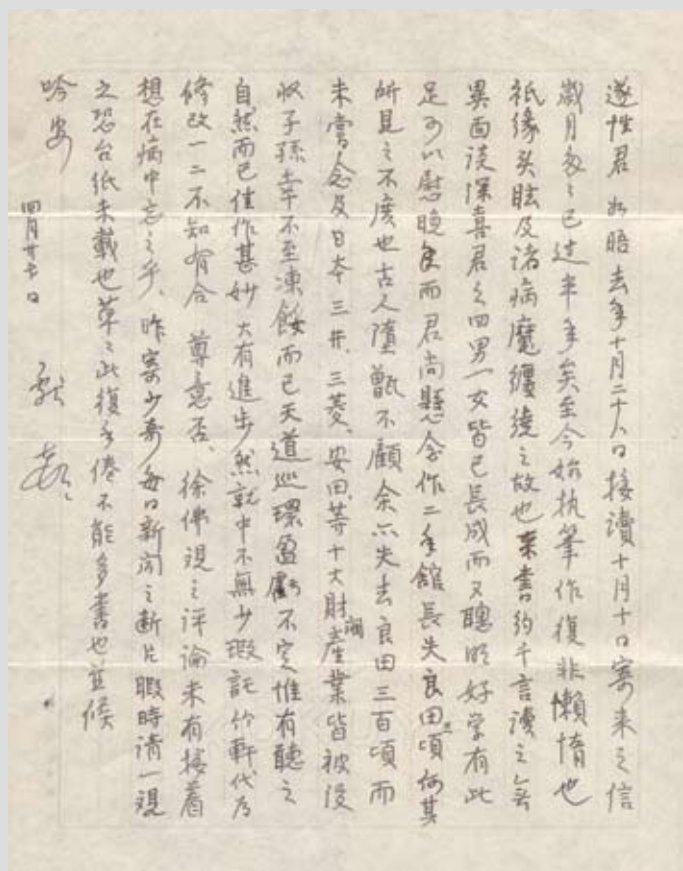 遂性君 如晤去年十月二十八日接讀十月十日寄来之信
歲月匆々已过半年矣至今始执筆作復非懶惰也
祇緣头眩及諸病魔纏繞之故也来書約千言讀之無
異面谈深喜君之四男一女皆已長成而又聰明好学有此
足可以慰晚良而君尚懸念作二年舘長失良田頃何其
所見之不廣也古人墮甑不顧余亦失去良田三百頃而
未嘗念及日本三井、三菱、安田、等十大財閥產業皆被没
收子孫幸不至凍餒而已天道巡環盈虧不定惟有聽之
自然而已佳作甚妙大有進步然就中不無少瑕託竹軒代乃
修改一二不知有合 尊意否、徐佛观之评論未有接着
想在病中忘之乎、昨寄少奇每日新闻之断片暇時请一观
之恐台纸未載也草々此復手倦不能多書也並候
吟安
四月廿七日 献堂